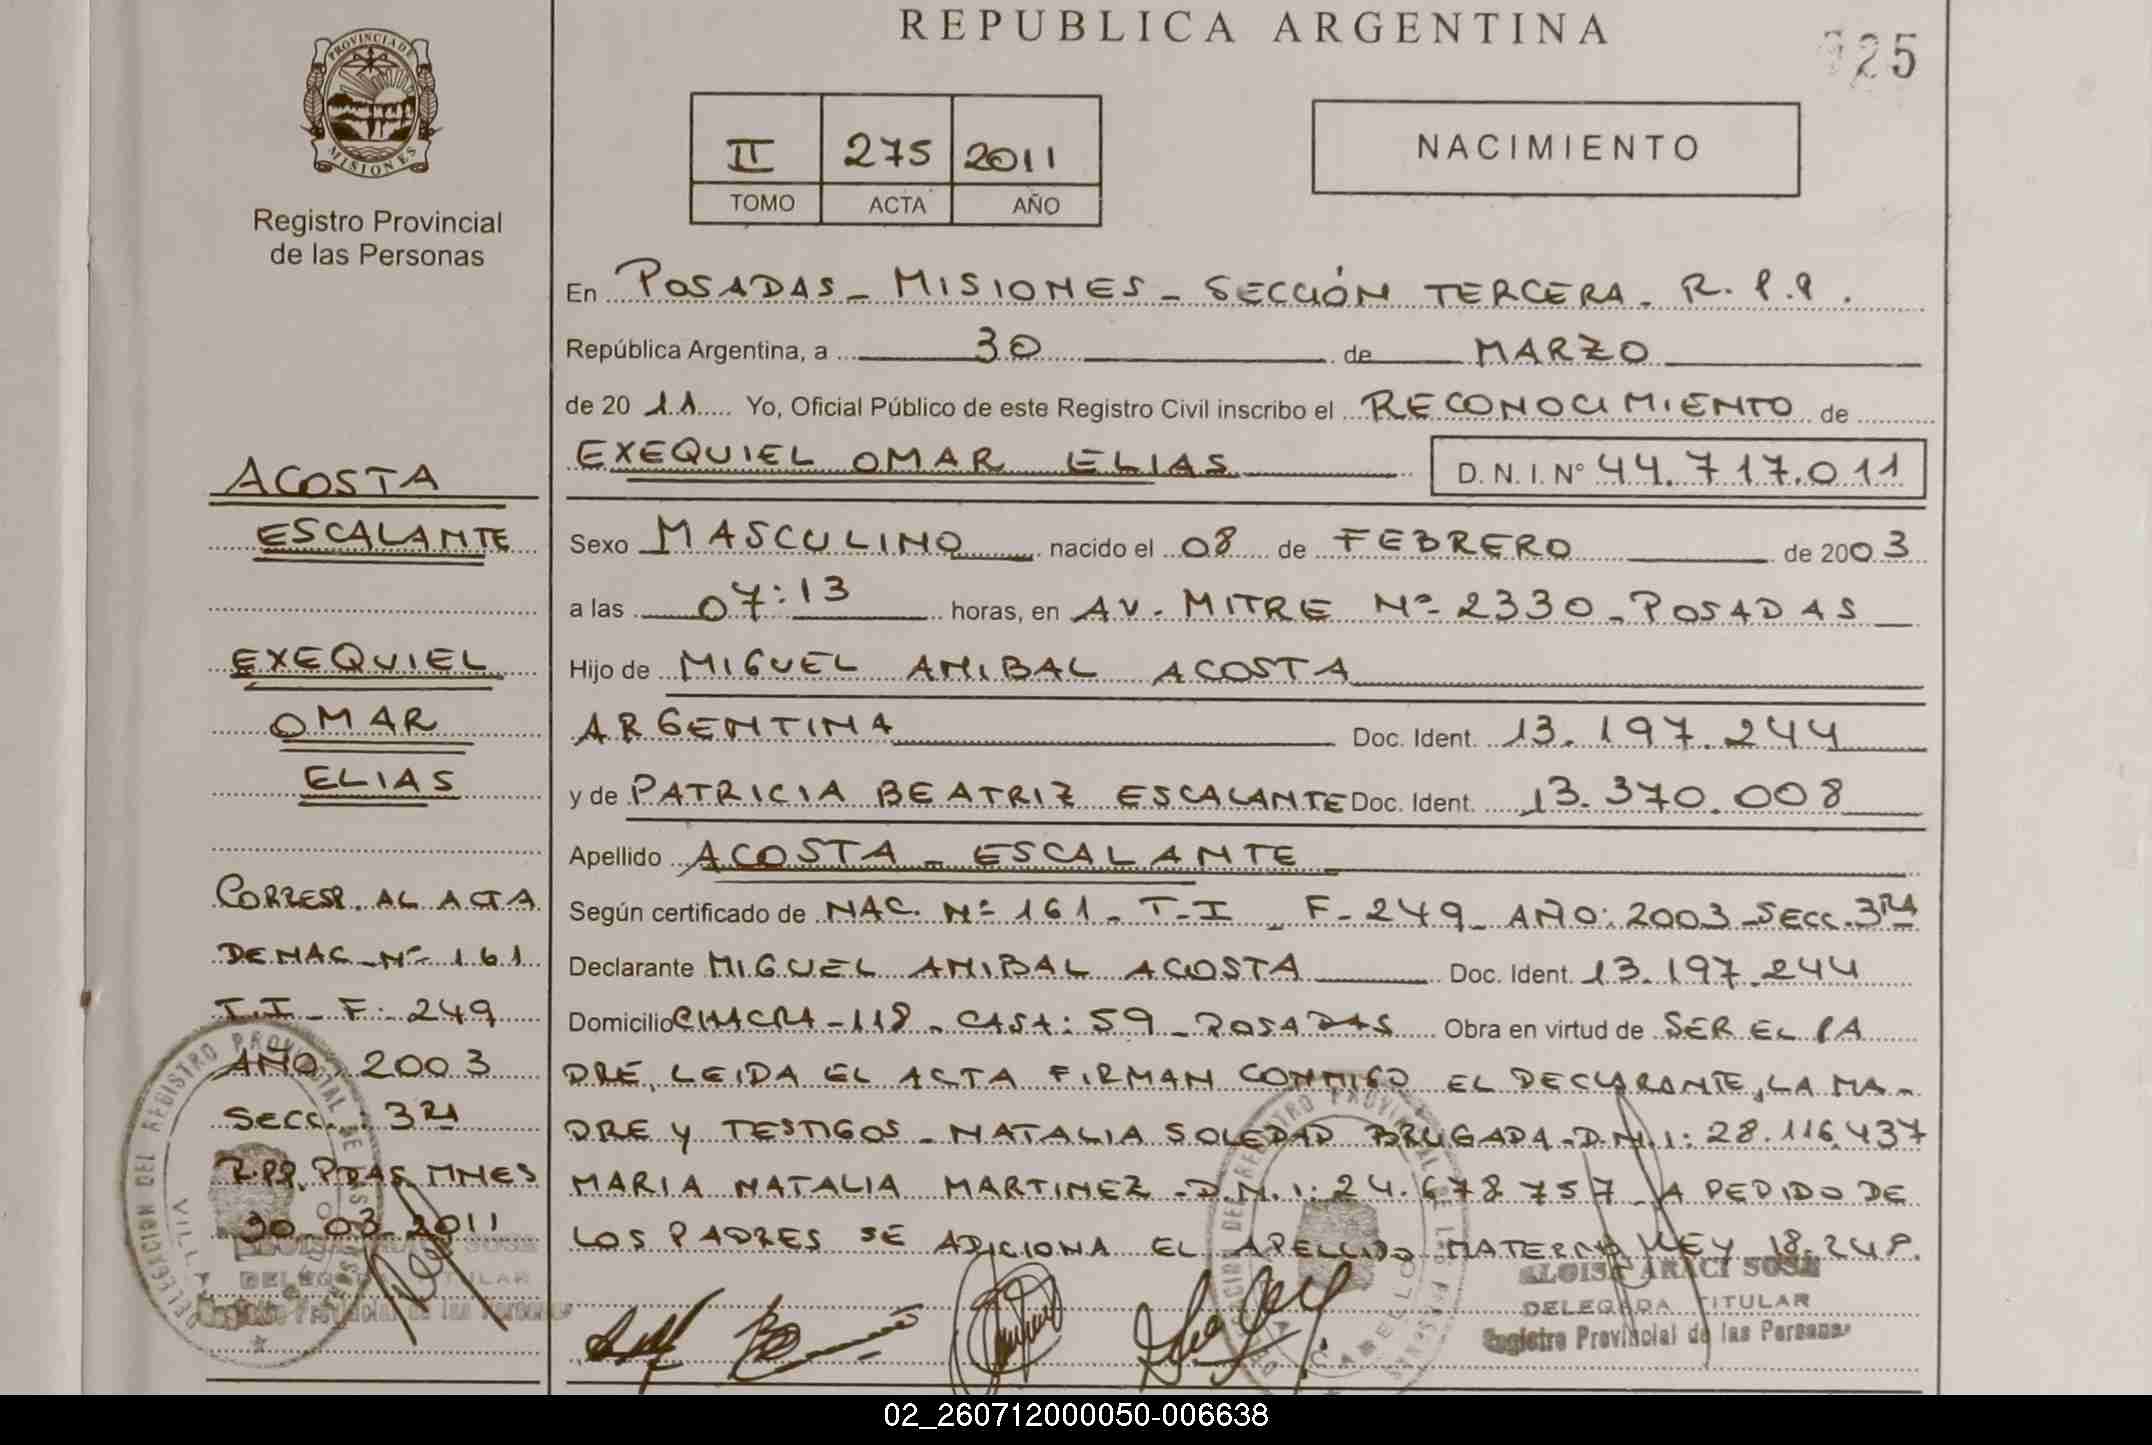 REPUBLICA ARGENTINA
25
PROVINCIA DE
MISIONES
Registro Provincial
de las Personas
II 275 2011
TOMO ACTA AÑO
NACIMIENTO
En POSADAS - MISIONES - SECCIÓN TERCERA - R.P.P.
República Argentina, a 30 de MARZO
de 2011 Yo, Oficial Público de este Registro Civil inscribo el RECONOCIMIENTO de
EXEQUIEL OMAR ELIAS D.N.I. Nº 44.717.011
Sexo MASCULINO nacido el 08 de FEBRERO de 2003
a las 07:13 horas, en AV. MITRE Nº 2330 - POSADAS
Hijo de MIGUEL ANIBAL ACOSTA
ARGENTINA Doc. Ident. 13.197.244
y de PATRICIA BEATRIZ ESCALANTE Doc. Ident. 13.370.008
Apellido ACOSTA - ESCALANTE
Según certificado de NAC. Nº 161 - T-I F-249 AÑO: 2003 - SECC. 3RA
Declarante MIGUEL ANIBAL ACOSTA Doc. Ident. 13.197.244
Domicilio CHACRA - 118 - CASA: 59 - POSADAS Obra en virtud de SER EL PA
DRE, LEIDA EL ACTA FIRMAN CONMIGO EL DECLARANTE, LA MA-
DRE Y TESTIGOS - NATALIA SOLEDAD BRUGADA - D.N.I: 28.116.437
MARIA NATALIA MARTINEZ - D.N.I: 24.678.757 - A PEDIDO DE
LOS PADRES SE ADICIONA EL APELLIDO MATERNO LEY 18.248.
ACOSTA
ESCALANTE
EXEQUIEL
OMAR
ELIAS
CORRESP. AL ACTA
DE NAC. Nº 161
T.I - F: 249
AÑO: 2003
SECC.: 3RA
R.PP. PDAS. MNES
30-03-2011
DELEGADA TITULAR
Registro Provincial de las Personas
DELEGACION DEL REGISTRO PROVINCIAL DE LAS
ELOISA ARACI SOSA
DELEGADA TITULAR
Registro Provincial de las Personas
02_260712000050-006638